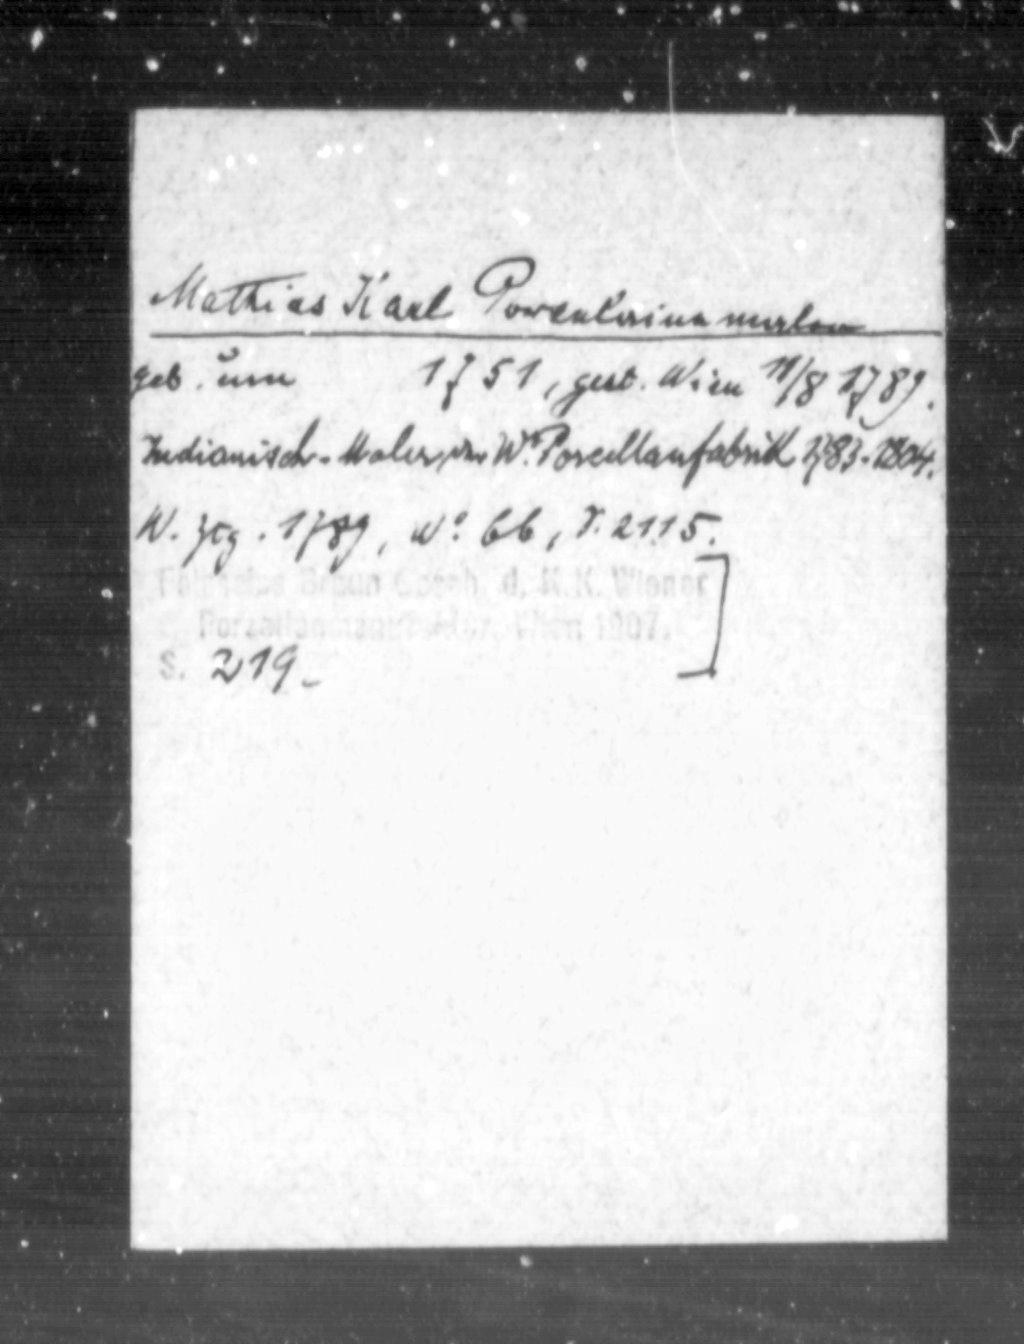 Mathias Karl Porcellainmaler
geb. um 1751, gest. Wien 11/8 1789.
Indianisch-Maler der Wr. Porcellanfabrik 1783-1804.
W. Ztg. 1789, No. 66, S. 2115.
Braun Gesch. d. K.K. Wiener
Porzellanmanufaktur, Wien 1907.
S. 219